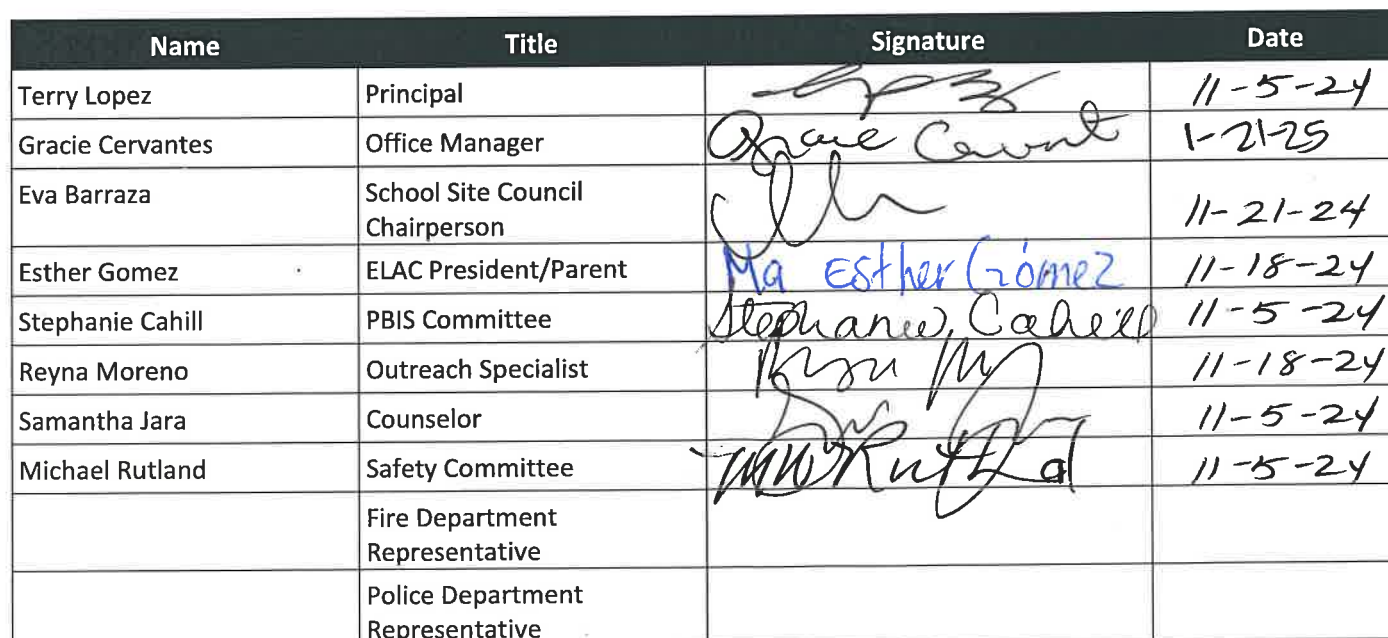 Name Title Signature Date
Terry Lopez Principal 11-5-24
Gracie Cervantes Office Manager 1-21-25
Eva Barraza School Site Council
Chairperson 11-21-24
Esther Gomez ELAC President/Parent Ma Esther Gómez 11-18-24
Stephanie Cahill PBIS Committee Stephanie Cahill 11-5-24
Reyna Moreno Outreach Specialist 11-18-24
Samantha Jara Counselor 11-5-24
Michael Rutland Safety Committee 11-5-24
Fire Department
Representative
Police Department
Representative